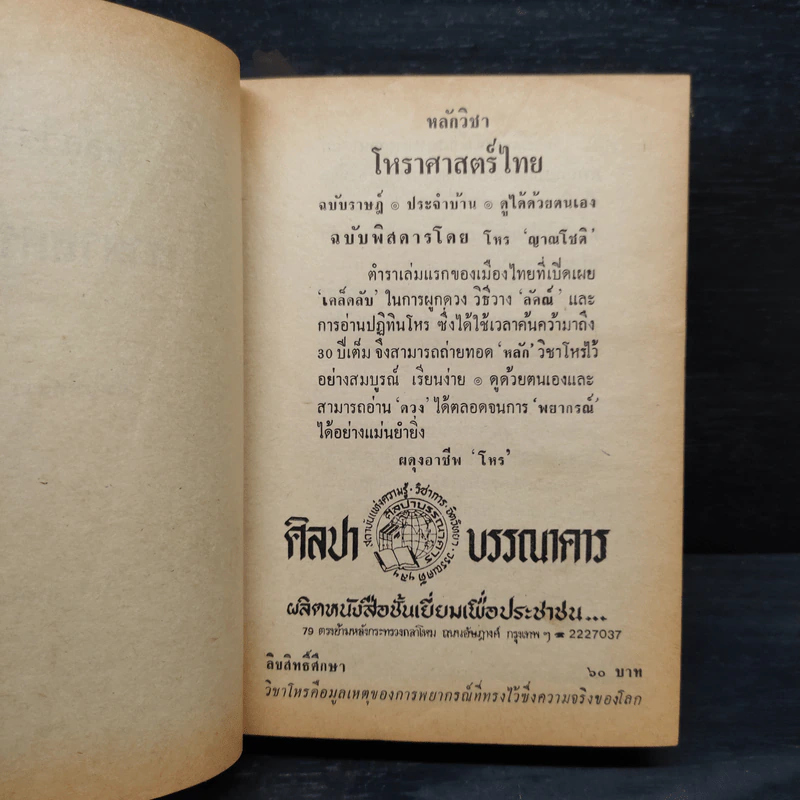 หลักวิชา
โหราศาสตร์ไทย
ฉบับราษฎ์ ๏ ประจำบ้าน ๏ ดูได้ด้วยตนเอง
ฉบับพิสดารโดย โหร ‘ญาณโชติ’
ตำราเล่มแรกของเมืองไทยที่เปิดเผย
‘เคล็ดลับ’ ในการผูกดวง วิธีวาง ‘ลัคณ์’ และ
การอ่านปฏิทินโหร ซึ่งได้ใช้เวลาค้นคว้ามาถึง
30 ปีเต็ม จึงสามารถถ่ายทอด ‘หลัก’ วิชาโหรไว้
อย่างสมบูรณ์ เรียนง่าย ๏ ดูด้วยตนเองและ
สามารถอ่าน ‘ดวง’ ได้ตลอดจนการ ‘พยากรณ์’
ได้อย่างแม่นยำยิ่ง
ผดุงอาชีพ ‘โหร’
สถาบันแห่งความรู้ · วิชาการ · จิตวิทยา · วรรณคดี
ศิลปาบรรณาคาร
ศิลปา บรรณาคาร
ผลิตหนังสือชั้นเยี่ยมเพื่อประชาชน...
79 ตรงข้ามหลังกระทรวงกลาโหม ถนนอัษฎางค์ กรุงเทพ ฯ ☎ 2227037
ลิขสิทธิ์ศึกษา
๖๐ บาท
วิชาโหรคือมูลเหตุของการพยากรณ์ที่ทรงไว้ซึ่งความจริงของโลก